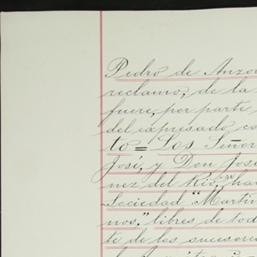 Pedro de Anzo
reclamo, de la
fuere, por parte
del expresado co
to = Los Señor
José, y Don José
nez del Rio, ha
Sociedad "Martin
nos." libres de tod
te de los sucesore